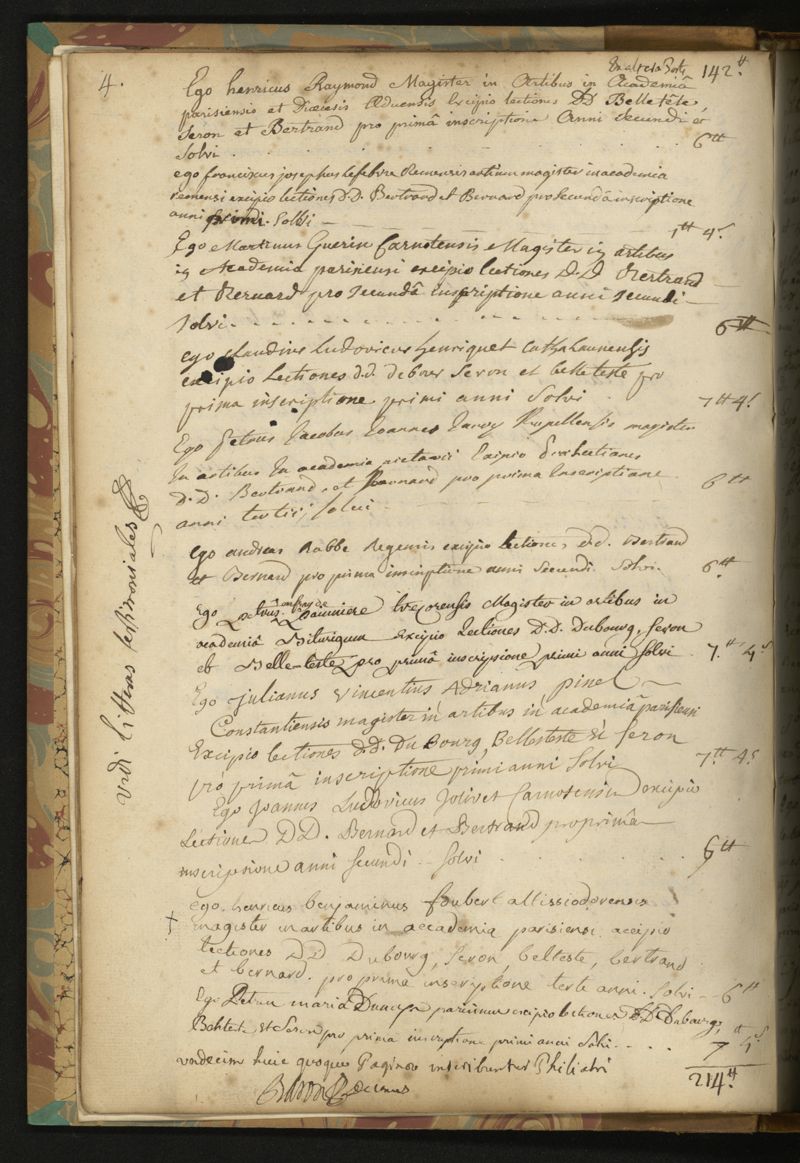 4.
142.tt
Ego henricus Raymond Magister in Artibus in Academiâ
parisiensis et Diœcesis Aduensis Excipio lectiones DD Belletete,
Seron et Bertrand pro primâ inscriptione Anni secundi et
Solvi . . . . . 6tt
ego franciscus josephus lefebvre Remensis artium magister in academia
remensi excipio lectiones D.D. Bertrand et Bernard pro secundâ inscriptione
anni primi. Solvi — 7tt 4s
Ego Martinus Guerin Carnotensis Magister in artibus
in Academia parisiensi excipio lectiones D.D. Bertrand
et Bernard pro secundâ inscriptione anni secundi
Solvi . . . . . 6tt
ego Claudius ludovicus henriquet Cathalaunensis
excipio Lectiones d.d. Seron et belleteste pro
prima inscriptione primi anni Solvi . 7tt 4s
Ego Petrus Jacobus Joannes Rupellensis magister
In artibus In academia Lectiones
D.D. Bertrand, et Bernard pro prima Inscriptione
anni tertii, solvi 6tt
ego andreas Rabbe Regensis excipio lectiones d.d. Bertrand
et Bernard pro prima inscriptione anni secundi. Solvi. 6tt
Ego Petrus Magister in artibus in
academiâ Biturigum Excipio Lectiones D.D. Dubourg, seron
et Belle-teste pro primâ inscripsione primi anni solvi . 7.tt 4s
Ego julianus Vincentius Adrianus pinel
Constantiensis magister in artibus in academiâ parisiensi
Excipio lectiones D.D. Du Bourg, Bellesteste et Seron
pro primâ inscriptione primi anni Solvi 7.tt 4.s
Ego Joannes Ludovicus Jolivet Carnotensis excipio
Lectiones DD. Bernard et Bertrand pro primâ
inscripsione anni secundi – solvi . . . . . 6tt
ego. henricus benjaminus foubert altissiodorensis
† magister in artibus in accademia parisiensi accipio
lectiones DD Dubourg, Seron, belleste, bertrand
et bernard. pro prima inscriptione terti anni. Solvi – 6tt
Ego Petrus maria parisinus excipio lectiones DD. Dubourg,
et Seron pro prima inscriptione primi anni Solvi . . . . 7tt 4s
undecim huic quoque Paginæ inscribuntur Philiatri
decanus
214.tt
vidi litteras testimoniales